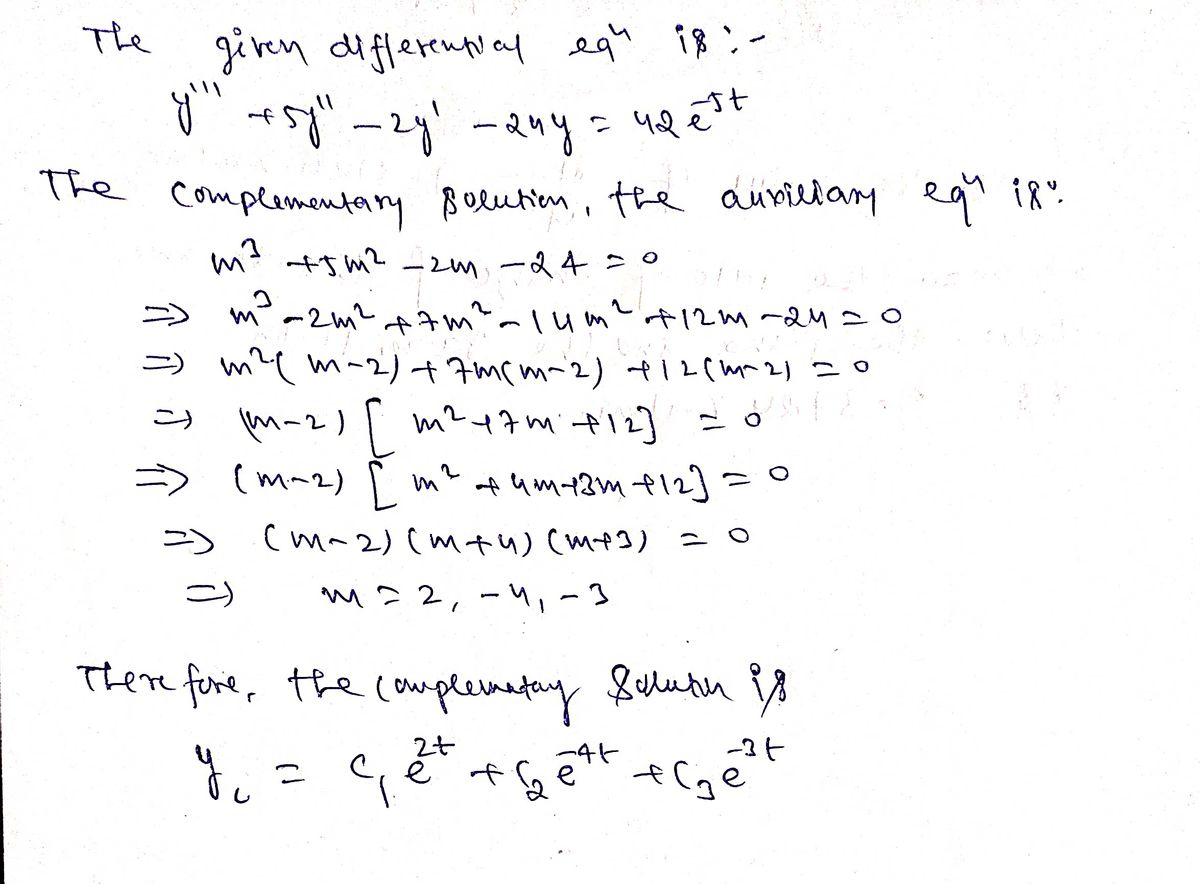 The given differential eqn is :-
y''' + 5y'' - 2y' - 24y = 42 e^-5t
The complementary solution, the auxiliary eqn is:
m³ + 5m² - 2m - 24 = 0
=> m³ - 2m² + 7m² - 14m² + 12m - 24 = 0
=> m²(m-2) + 7m(m-2) + 12(m-2) = 0
=> (m-2) [ m² + 7m + 12] = 0
=> (m-2) [ m² + 4m + 3m + 12] = 0
=> (m-2) (m+4) (m+3) = 0
=> m = 2, -4, -3
Therefore, the complemetary Solution is
y_c = c₁ e^2t + c₂ e^-4t + c₃ e^-3t